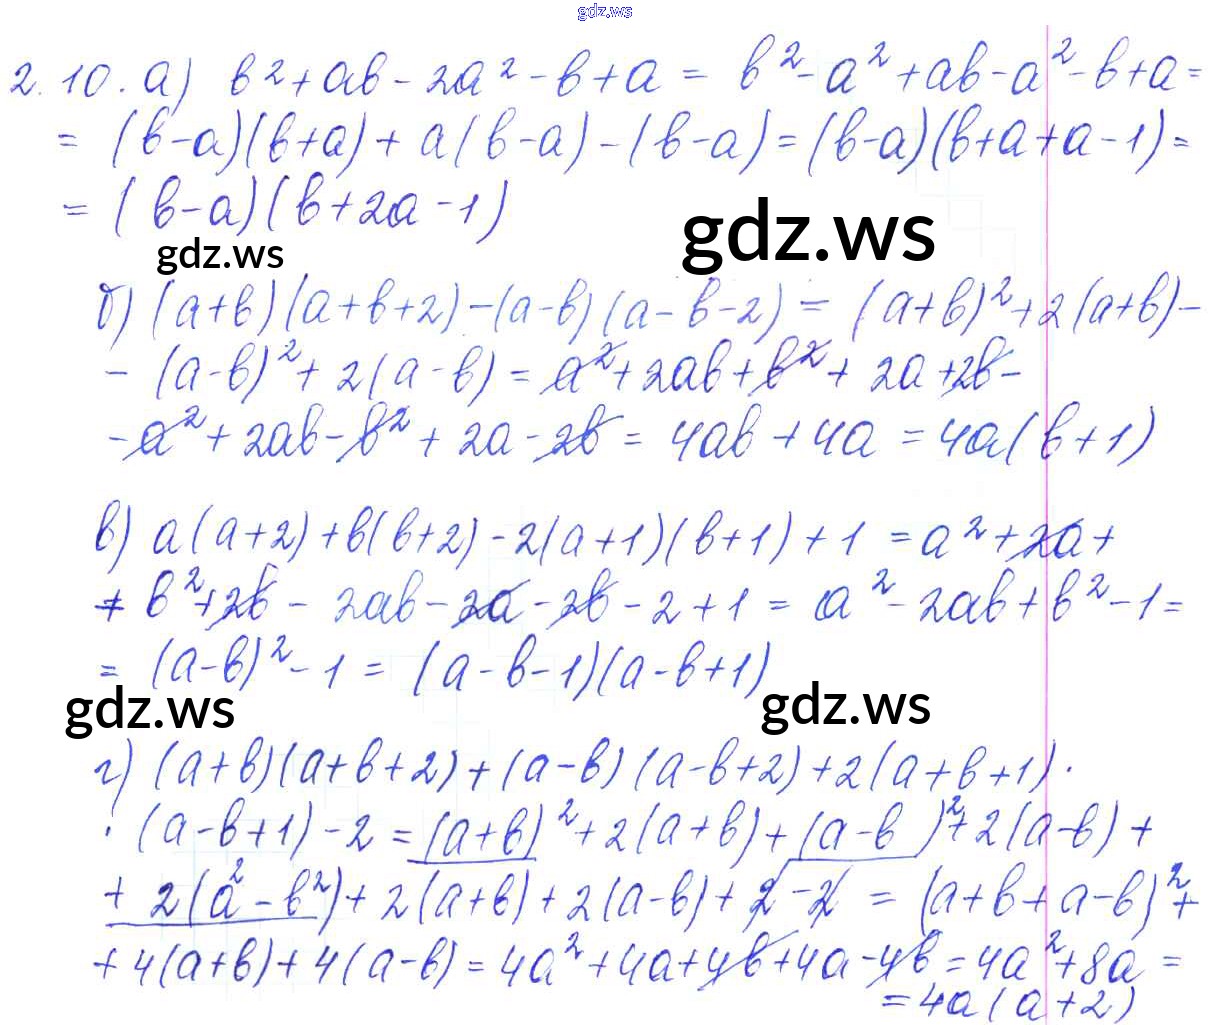 gdz.ws
2.10. а) b² + ab - 2a² - b + a = b² - a² + ab - a² - b + a =
= (b-a)(b+a) + a(b-a) - (b-a) = (b-a)(b+a+a-1) =
= (b-a)(b+2a-1)
gdz.ws
gdz.ws
б) (a+b)(a+b+2) - (a-b)(a-b-2) = (a+b)² + 2(a+b) -
- (a-b)² + 2(a-b) = a² + 2ab + b² + 2a + 2b -
- a² + 2ab - b² + 2a - 2b = 4ab + 4a = 4a(b+1)
в) a(a+2) + b(b+2) - 2(a+1)(b+1) + 1 = a² + 2a +
+ b² + 2b - 2ab - 2a - 2b - 2 + 1 = a² - 2ab + b² - 1 =
= (a-b)² - 1 = (a-b-1)(a-b+1)
gdz.ws
gdz.ws
г) (a+b)(a+b+2) + (a-b)(a-b+2) + 2(a+b+1) ·
· (a-b+1) - 2 = (a+b)² + 2(a+b) + (a-b)² + 2(a-b) +
+ 2(a² - b²) + 2(a+b) + 2(a-b) + 2 - 2 = (a+b+a-b)² +
+ 4(a+b) + 4(a-b) = 4a² + 4a + 4b + 4a - 4b = 4a² + 8a =
= 4a(a+2)